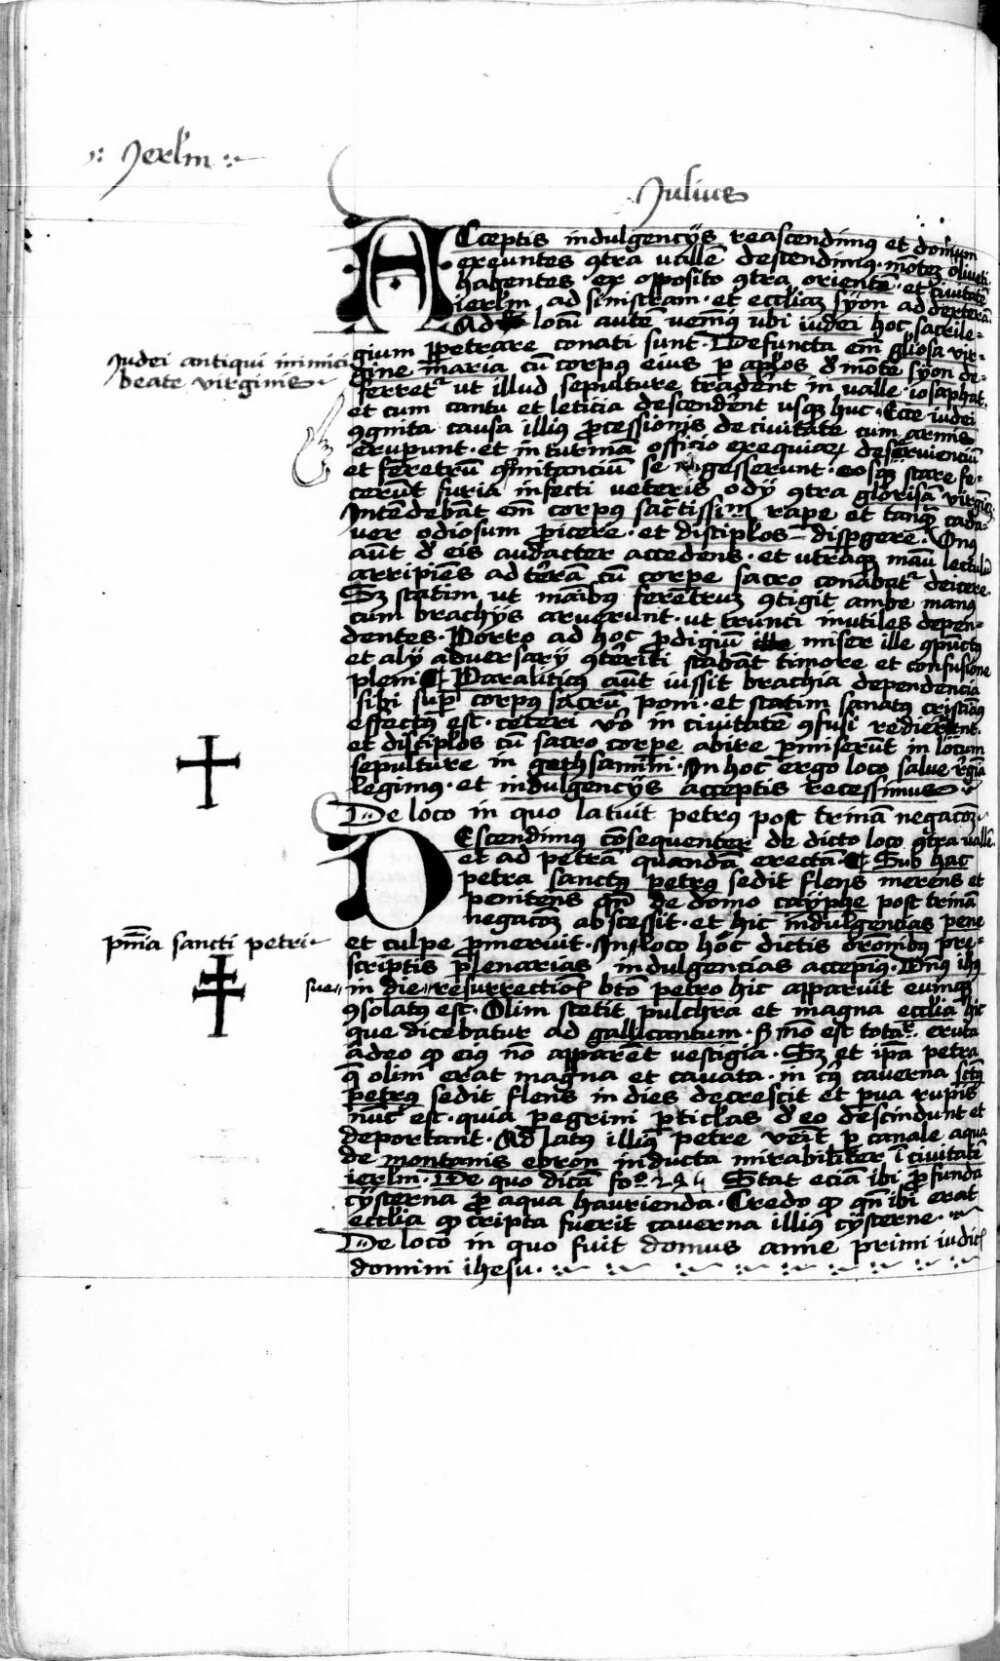 Jerlm
Julius
ACceptis indulgencijs reascendimꝰ et domum
exeuntes ꝯtra vallē descendimꝰ · mōtez oliueti
habentes · ex opposito ꝯtra orientē · et ciuitatē
ierlm ad sinistram · et eccliaz syon ad dexterā
Ad locū autē venimꝰ vbi iudei hoc sacrile-
gium ꝑpetrare conati sunt · Defuncta em̄ gliosa vir-
gine maria cū corpus eiꝰ ꝑ apl̄os d̄ mōte syon de-
ferret᷑ vt illud sepulture tradēnt in valle iosaphat
et cum cantu et leticia descendēnt vsqꝫ huc · Ecce iudei
ꝯgnita causa illiꝰ ꝓcessionis de ciuitate cum armis
eruperunt · et in turmā officio exequiaꝝ deseruienciū
et feretrū ꝯmitanciū se gesserunt · eosqꝫ stare fe-
cerūt furia infecti veteris odij ꝯtra gloriosā virgīeꝫ
Intendebāt em̄ corpus sāctissim̄ rapere et tanqꝫ cada-
uer odiosum ꝓicere · et discipl̄os dispgere · Vnꝰ
aūt d̄ eis audacter accedens · et vtraqꝫ manu lectulū
arripiēs ad terrā cū corpe sacro conabat᷑ deicere
Sꝫ statim vt manibꝰ feretruꝫ ꝯtigit ambe manꝰ
cum brachijs aruerunt · vt trunci inutiles depen-
dentes · Porro ad hoc ꝓdigiū miser ille ꝯpūctꝰ
et alij aduersarij ꝯteriti stabāt timore et confusione
pleni ¶ Paraliticꝰ aūt iussit brachia dependencia
sibi suꝑ corpus sacrū poni · et statim sanatꝰ cristianꝰ
effectꝰ est · ceteri vo in ciuitatē ꝯfusi redierūnt
et discipl̄os cū sacro corpe abire ꝑmiserūt in locum
sepulture in gethsamim · In hoc ergo loco salue regīa
legimꝰ · et indulgencijs acceptis recessimus
Iudei antiqui inimici
beate virginis
De loco in quo latuit petrꝰ post trinā negacōꝫ
DEscendimꝰ cōsequenter de dicto loco ꝯtra vallē
et ad petrā quandā erectā ¶ Sub hac
petra sanctꝰ petrꝰ sedit flens merens et
penitens qn̄ de domo cayphe post trinā
negacōꝫ abscessit · et hic indulgencias pene
et culpe ꝓmeruit · In loco hoc dictis oronibꝰ pre-
scriptis plenarias indulgencias accepimꝰ · Dn̄s ihs
in die resurrectiōis bto petro hic apparuit eumqꝫ
ꝯsolatꝰ est · Olim stetit pulchra et magna ecclia hic
que dicebatur ad gallicantum · sꝫ mō est totar eruta
adeo ꝙ eiꝰ nō apparēt vestigia · Sꝫ et ipā petra
q̄ olim erat magna et cauata · in cꝰ cauerna sctꝰ
petrꝰ sedit flens in dies decrescit et pua rupis
nūc est · quia pegrini pticl̄as d̄ eo descindunt et
deportant · Ad latꝰ illiꝰ petre venit ꝑ canale aqua
de montanis ebron inducta mirabiliter ī ciuitatē
ierlm · De quo dicā fo Stat eciā ibi ꝓfunda
cysterna ꝓ aqua haurienda · Credo ꝙ qn̄ ibi erat
ecclia ꝙ cripta fuerit cauerna illiꝰ cysterne ·
pnīa sancti petri
sue
De loco in quo fuit domus anne primi iudicꝭ
domini ihesu ·